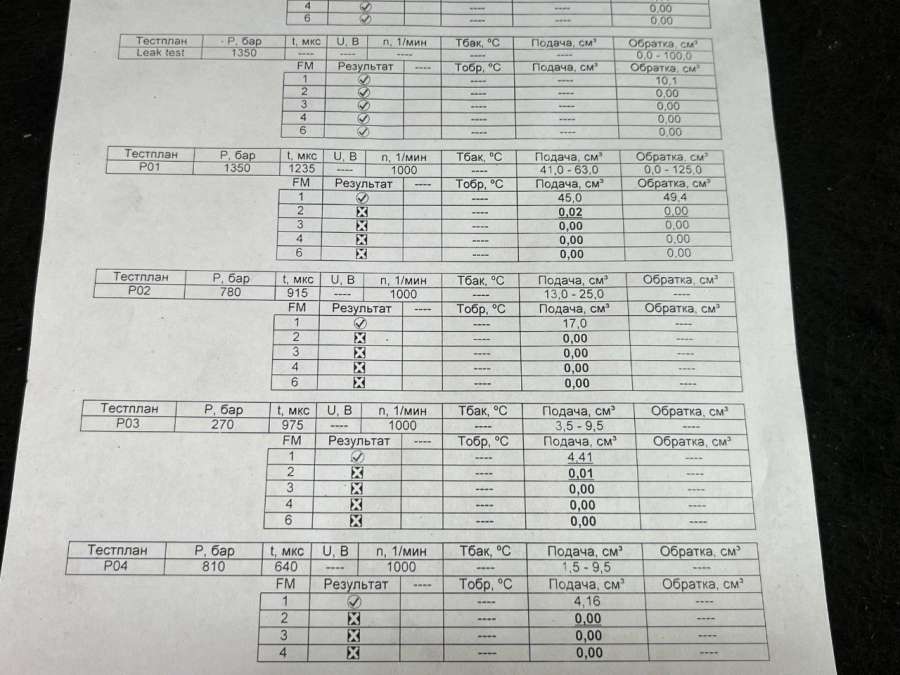 4 ---- ---- 0,00
6 ---- ---- 0,00
Тестплан P, бар t, мкс U, В n, 1/мин Tбак, ºC Подача, см³ Обратка, см³
Leak test 1350 ---- ---- ---- ---- ---- 0,0 - 100,0
FM Результат ---- Tобр, ºC Подача, см³ Обратка, см³
1 ---- ---- 10,1
2 ---- ---- 0,00
3 ---- ---- 0,00
4 ---- ---- 0,00
6 ---- ---- 0,00
Тестплан P, бар t, мкс U, В n, 1/мин Tбак, ºC Подача, см³ Обратка, см³
P01 1350 1235 ---- 1000 ---- 41,0 - 63,0 0,0 - 125,0
FM Результат ---- Tобр, ºC Подача, см³ Обратка, см³
1 ---- 45,0 49,4
2 ---- 0,02 0,00
3 ---- 0,00 0,00
4 ---- 0,00 0,00
6 ---- 0,00 0,00
Тестплан P, бар t, мкс U, В n, 1/мин Tбак, ºC Подача, см³ Обратка, см³
P02 780 915 ---- 1000 ---- 13,0 - 25,0 ----
FM Результат ---- Tобр, ºC Подача, см³ Обратка, см³
1 ---- 17,0 ----
2 ---- 0,00 ----
3 ---- 0,00 ----
4 ---- 0,00 ----
6 ---- 0,00 ----
Тестплан P, бар t, мкс U, В n, 1/мин Tбак, ºC Подача, см³ Обратка, см³
P03 270 975 ---- 1000 ---- 3,5 - 9,5 ----
FM Результат ---- Tобр, ºC Подача, см³ Обратка, см³
1 ---- 4,41 ----
2 ---- 0,01 ----
3 ---- 0,00 ----
4 ---- 0,00 ----
6 ---- 0,00 ----
Тестплан P, бар t, мкс U, В n, 1/мин Tбак, ºC Подача, см³ Обратка, см³
P04 810 640 ---- 1000 ---- 1,5 - 9,5 ----
FM Результат ---- Tобр, ºC Подача, см³ Обратка, см³
1 ---- 4,16 ----
2 ---- 0,00 ----
3 ---- 0,00 ----
4 ---- 0,00 ----